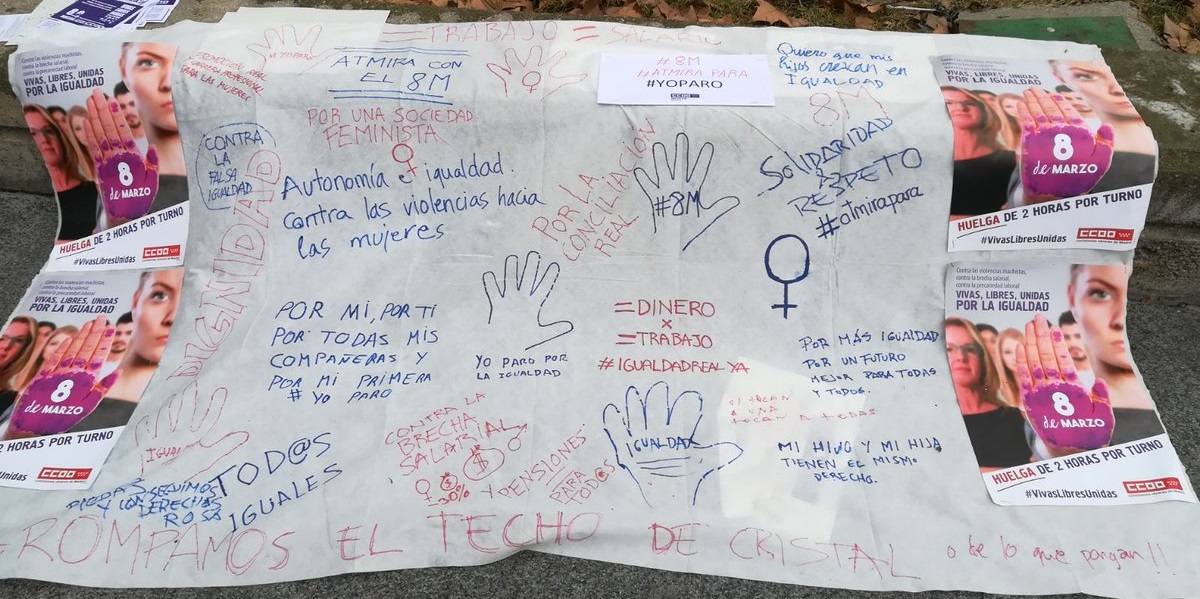 = TRABAJO = SALARIO
Contra las violencias machistas,
la brecha salarial,
contra la precariedad laboral
VIVAS, LIBRES, UNIDAS
POR LA IGUALDAD
8
de MARZO
HUELGA DE 2 HORAS POR TURNO
#VivasLibresUnidas
CCOO
PARA LAS MUJERES
YO PARO
ATMIRA CON
EL 8M
POR UNA SOCIEDAD
FEMINISTA
#8M
#ATMIRA PARA
#YOPARO
CCOO
Quiero que mis
hijos crezcan en
IGUALDAD
8M
Contra las violencias machistas,
la brecha salarial,
contra la precariedad laboral
VIVAS, LIBRES, UNIDAS
POR LA IGUALDAD
8
de MARZO
HUELGA DE 2 HORAS POR TURNO
#VivasLibresUnidas
CCOO
CONTRA
LA
FALSA
IGUALDAD
DIGNIDAD
Autonomía e igualdad.
contra las violencias hacia
las mujeres
POR LA
CONCILIACIÓN
REAL
#8M
SOLIDARIDAD
RESPETO
#atmirapara
Contra las violencias machistas,
la brecha salarial,
contra la precariedad laboral
VIVAS, LIBRES, UNIDAS
POR LA IGUALDAD
8
de MARZO
2 HORAS POR TURNO
Unidas
CCOO
POR MI, POR TI
POR TODAS MIS
COMPAÑERAS Y
POR MI PRIMERA
# YO PARO
YO PARO POR
LA IGUALDAD
= DINERO
x
= TRABAJO
#IGUALDADREALYA
POR MÁS IGUALDAD
POR UN FUTURO
MEJOR PARA TODAS
Y TODOS.
Contra las violencias machistas,
la brecha salarial,
contra la precariedad laboral
VIVAS, LIBRES, UNIDAS
POR LA IGUALDAD
8
de MARZO
HUELGA DE 2 HORAS POR TURNO
#VivasLibresUnidas
CCOO
IGUAL
TOD@S
IGUALES
CONTRA LA
BRECHA
SALARIAL
$
30%
Y PENSIONES
PARA
TOD@S
IGUALDAD
SI TOCAN
A UNA
TOCAN A TODAS
MI HIJO Y MI HIJA
TIENEN EL MISMO
DERECHO.
ROSA
ROMPAMOS EL TECHO DE CRISTAL o de lo que pongan!!